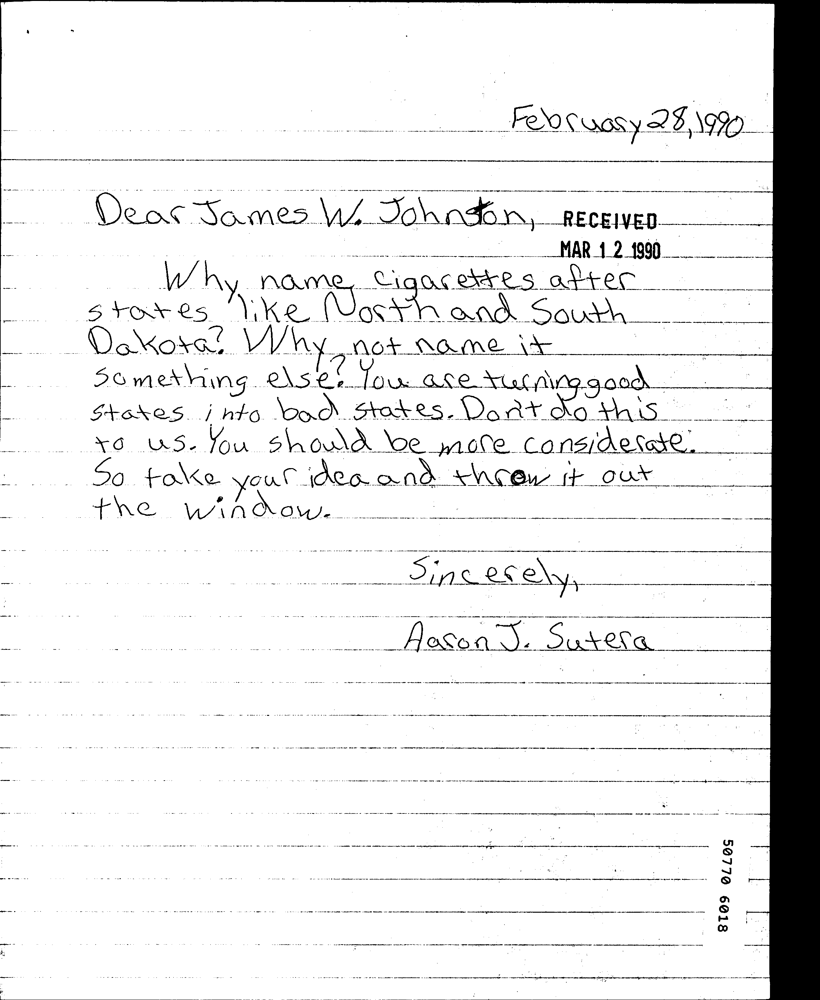 February 28, 1990
Dear James W. Johnston,
RECEIVED
MAR 12 1990
Why name cigarettes after
states like North and South
Dakota? Why not name it
something else? You are turning good
states into bad states. Don't do this
to us. You should be more considerate.
So take your idea and throw it out
the window.
Sincerely,
Aaron J. Sutera
50770 6018